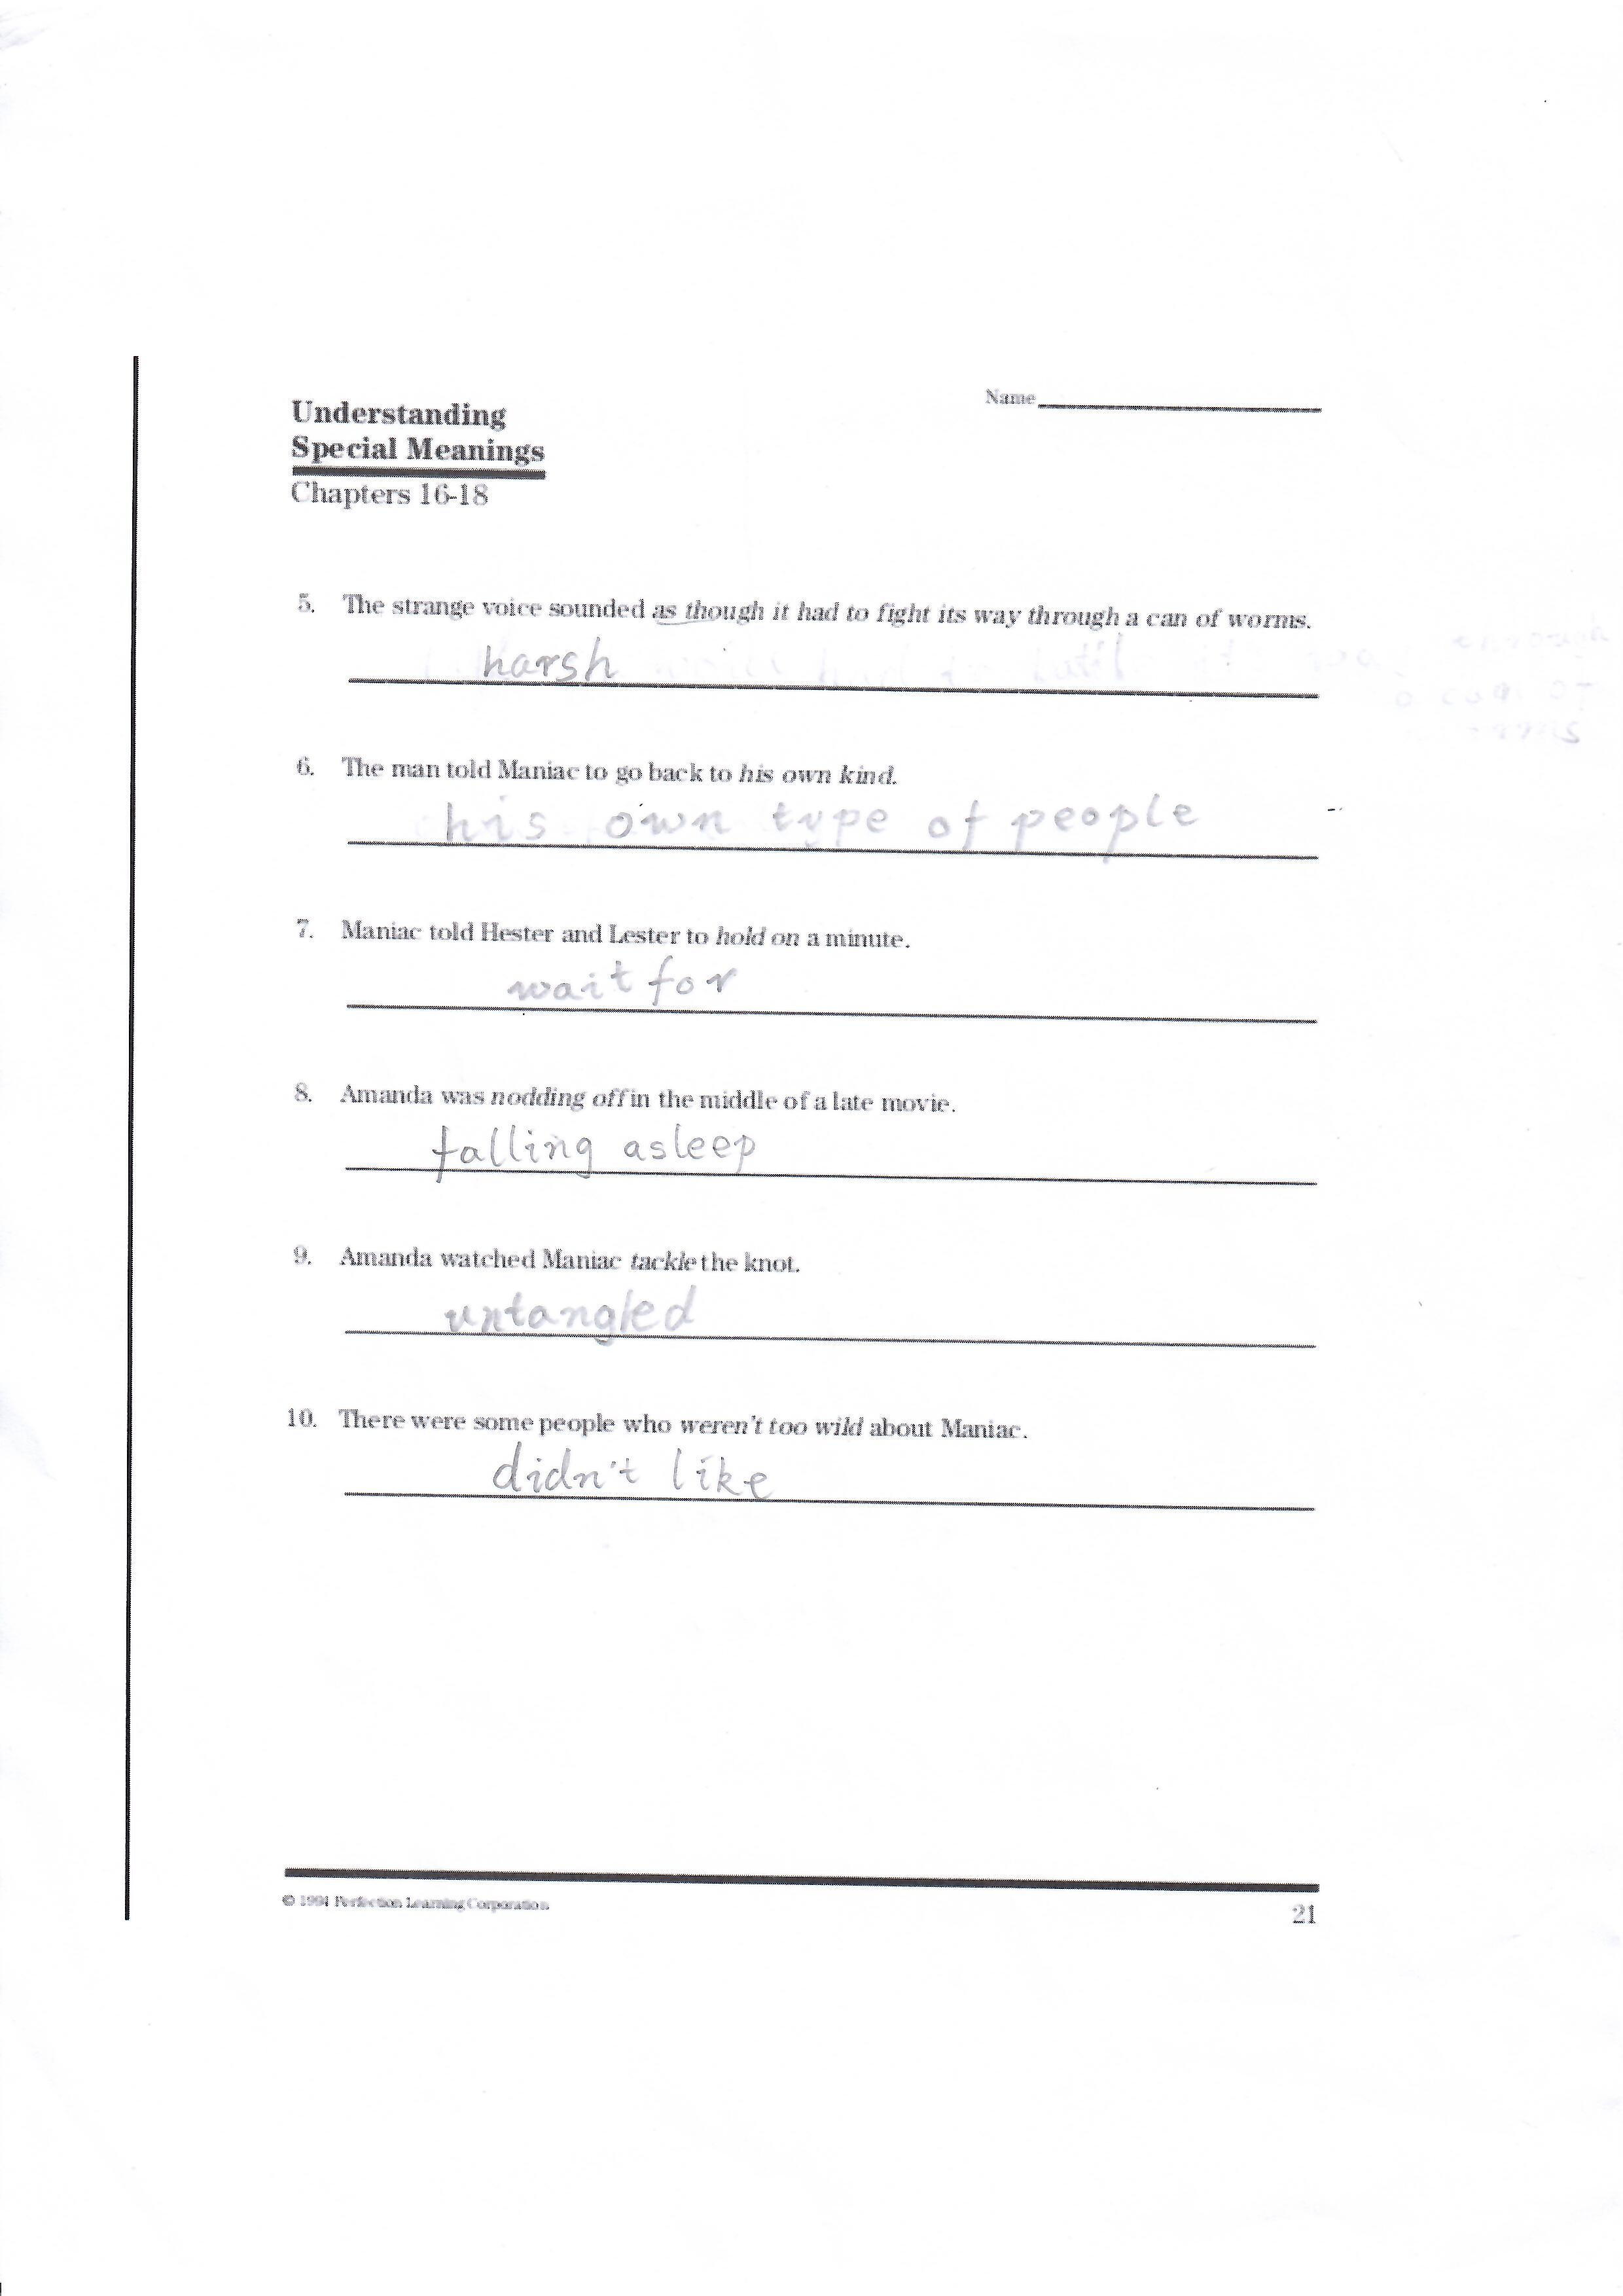 Name
Understanding
Special Meanings
Chapters 16-18
5. The strange voice sounded as though it had to fight its way through a can of worms.
harsh
6. The man told Maniac to go back to his own kind.
his own type of people
7. Maniac told Hester and Lester to hold on a minute.
wait for
8. Amanda was nodding off in the middle of a late movie.
falling asleep
9. Amanda watched Maniac tackle the knot.
untangled
10. There were some people who weren't too wild about Maniac.
didn't like
© 1991 Perfection Learning Corporation
21